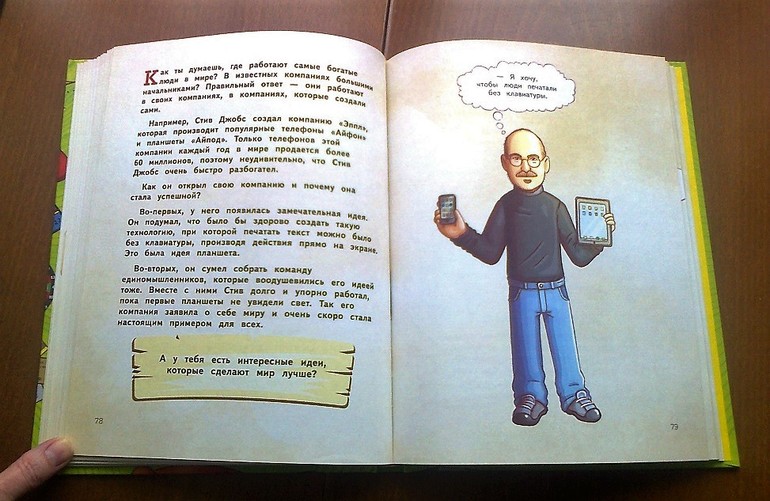 Как ты думаешь, где работают самые богатые
люди в мире? В известных компаниях большими
начальниками? Правильный ответ — они работают
в своих компаниях, в компаниях, которые создали
сами.
Например, Стив Джобс создал компанию «Эппл»,
которая производит популярные телефоны «Айфон»
и планшеты «Айпод». Только телефонов этой
компании каждый год в мире продается более
60 миллионов, поэтому неудивительно, что Стив
Джобс очень быстро разбогател.
Как он открыл свою компанию и почему она
стала успешной?
Во-первых, у него появилась замечательная идея.
Он подумал, что было бы здорово создать такую
технологию, при которой печатать текст можно было
без клавиатуры, производя действия прямо на экране.
Это была идея планшета.
Во-вторых, он сумел собрать команду
единомышленников, которые воодушевились его идеей
тоже. Вместе с ними Стив долго и упорно работал,
пока первые планшеты не увидели свет. Так его
компания заявила о себе миру и очень скоро стала
настоящим примером для всех.
А у тебя есть интересные идеи,
которые сделают мир лучше?
78
— Я хочу,
чтобы люди печатали
без клавиатуры.
79